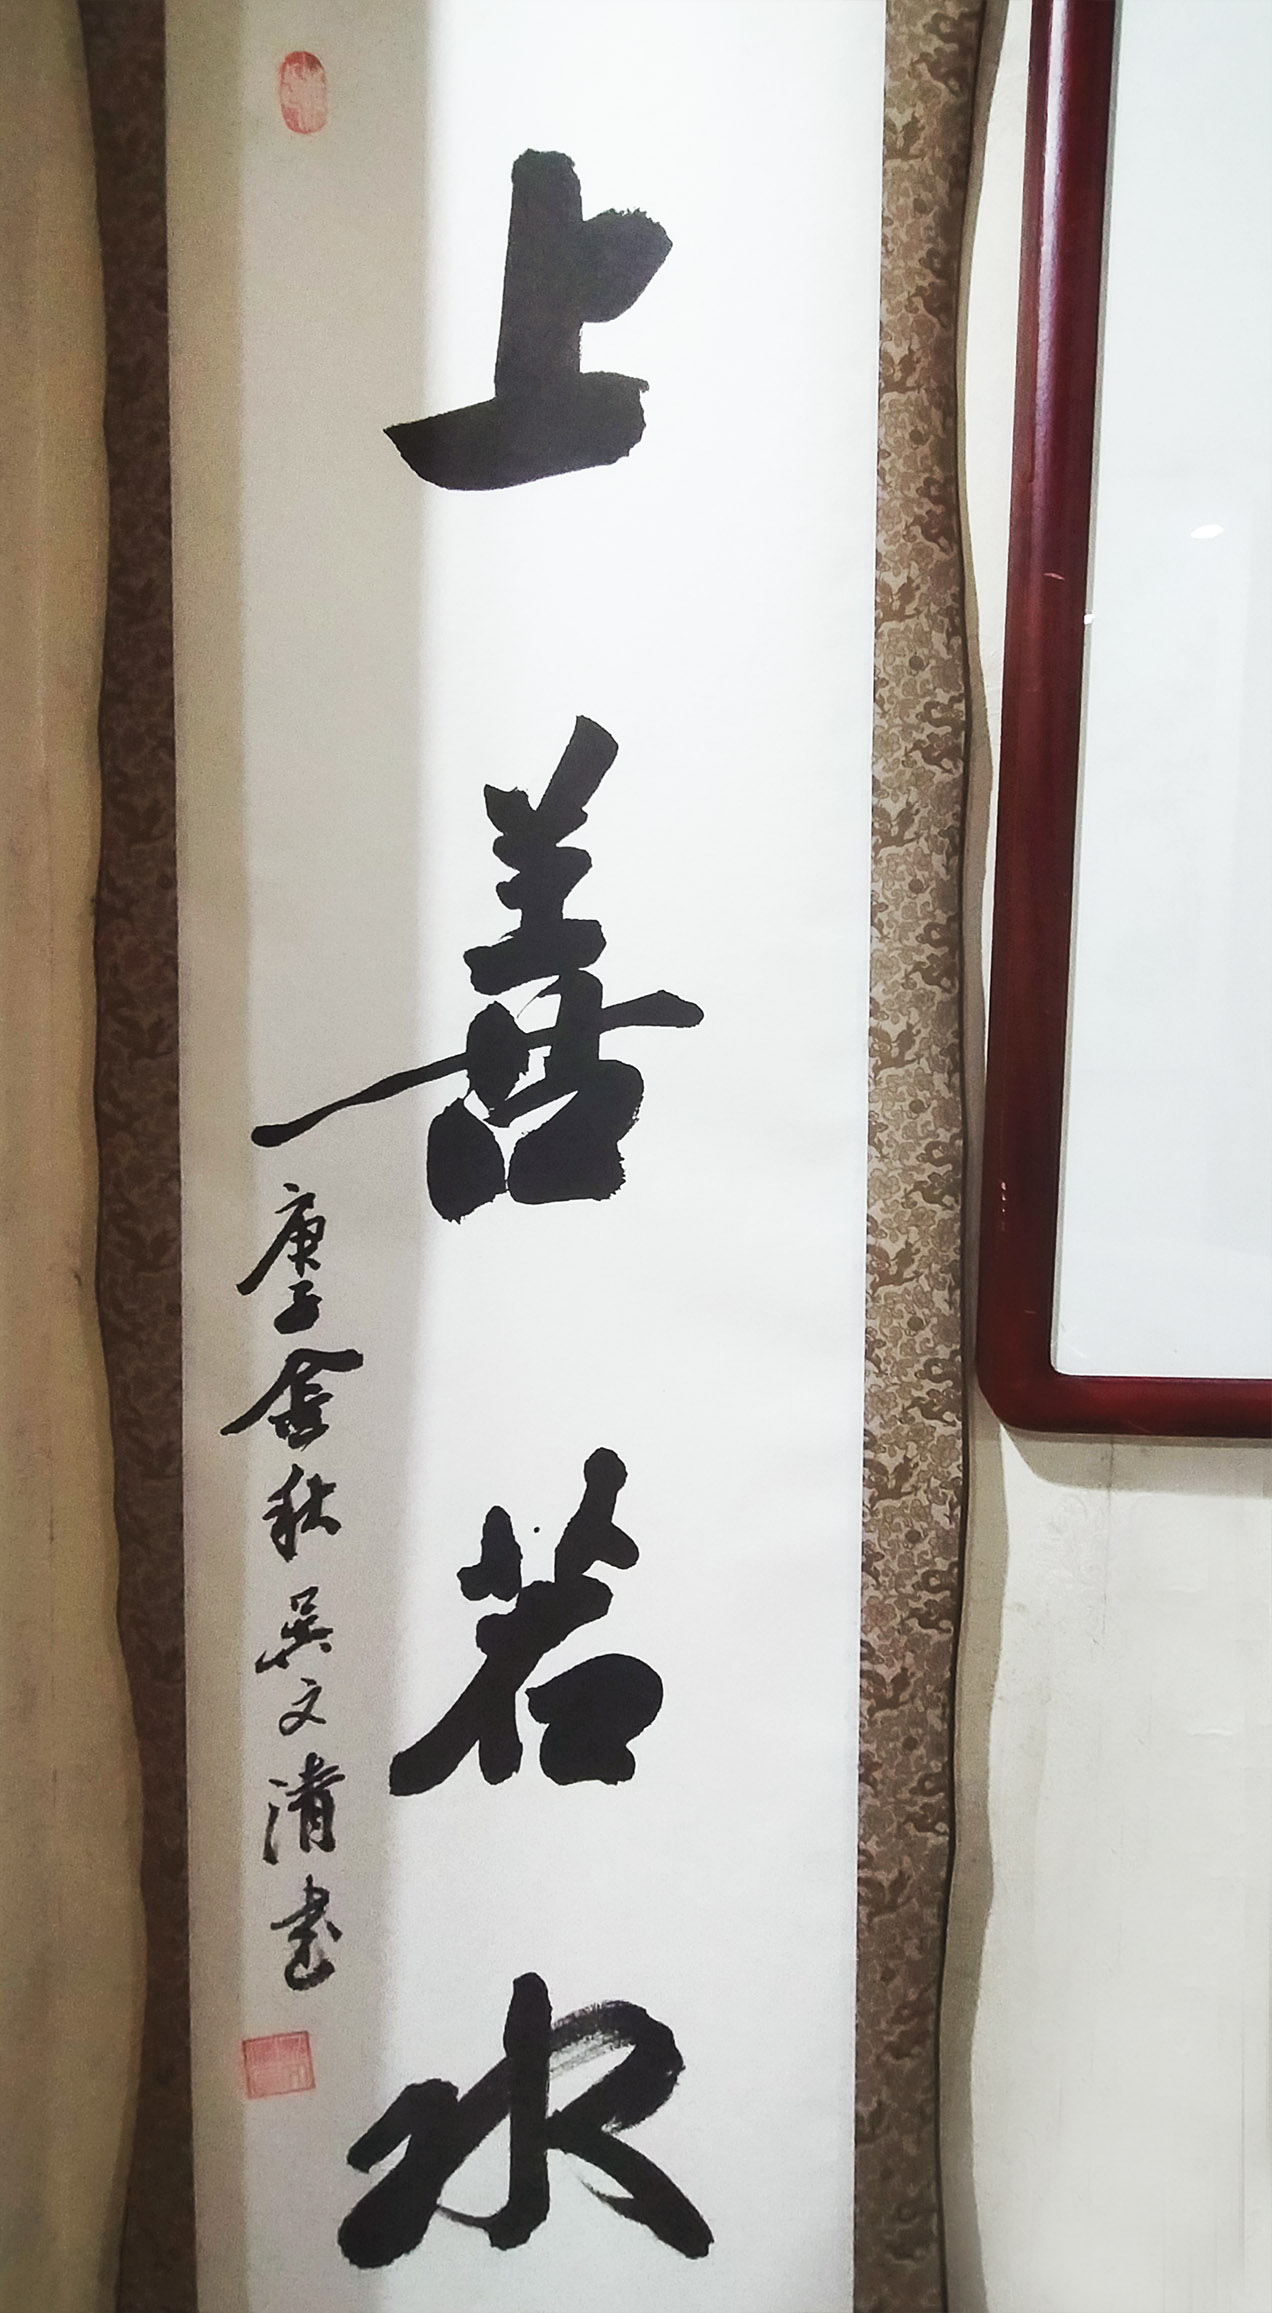 上善若水
庚子金秋吴文清书